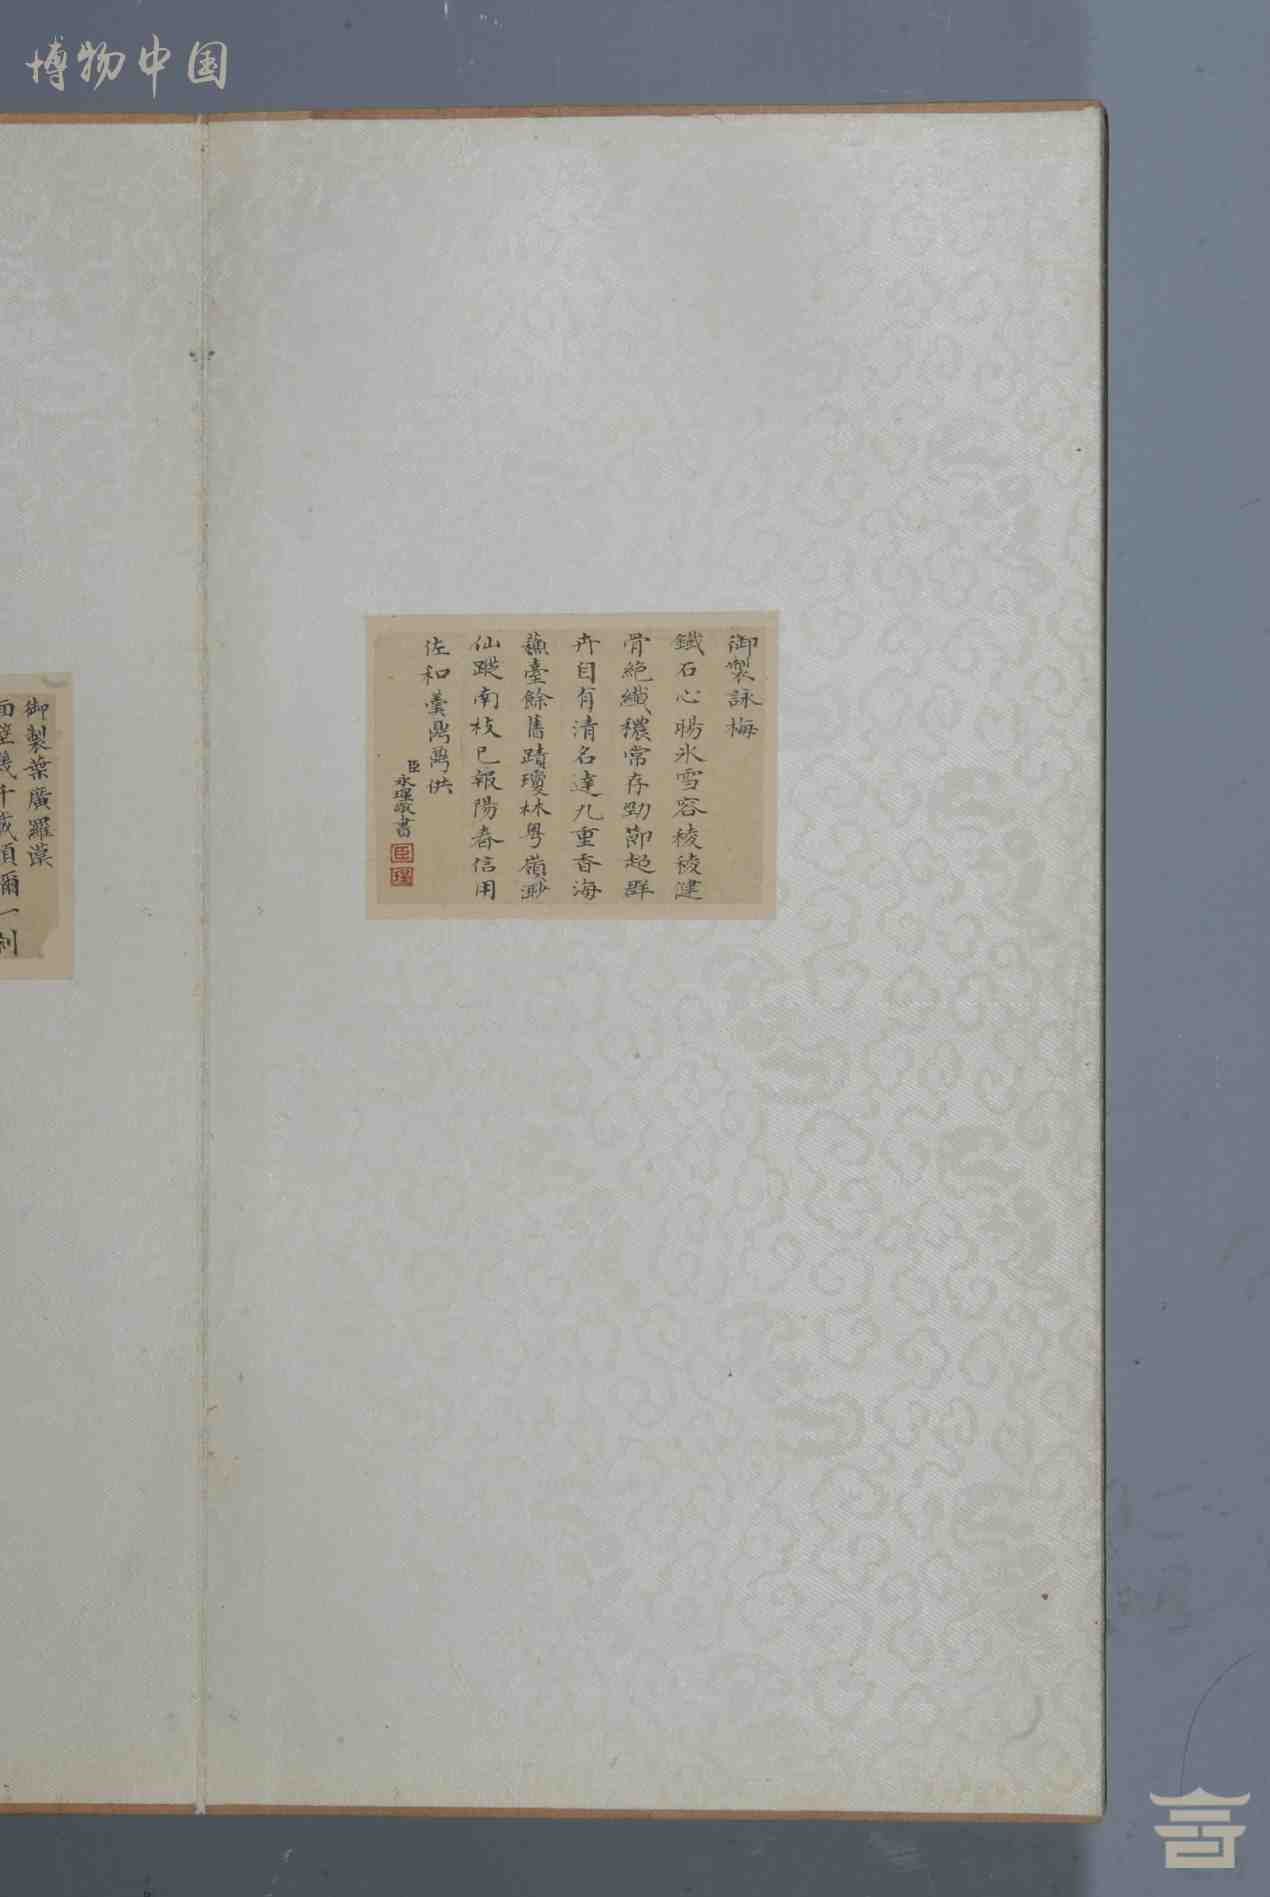 博物中国
御製詠梅
鐵石心腸氷雪容稜稜健
骨絶纖穠常存勁節超群
卉自有清名達九重香海
蘓臺餘舊蹟瓊林粤嶺渺
仙蹤南枝已報陽春信用
佐和羹鼎鼐供
臣永瑆敬書
臣
瑆
御製葉廣羅漢